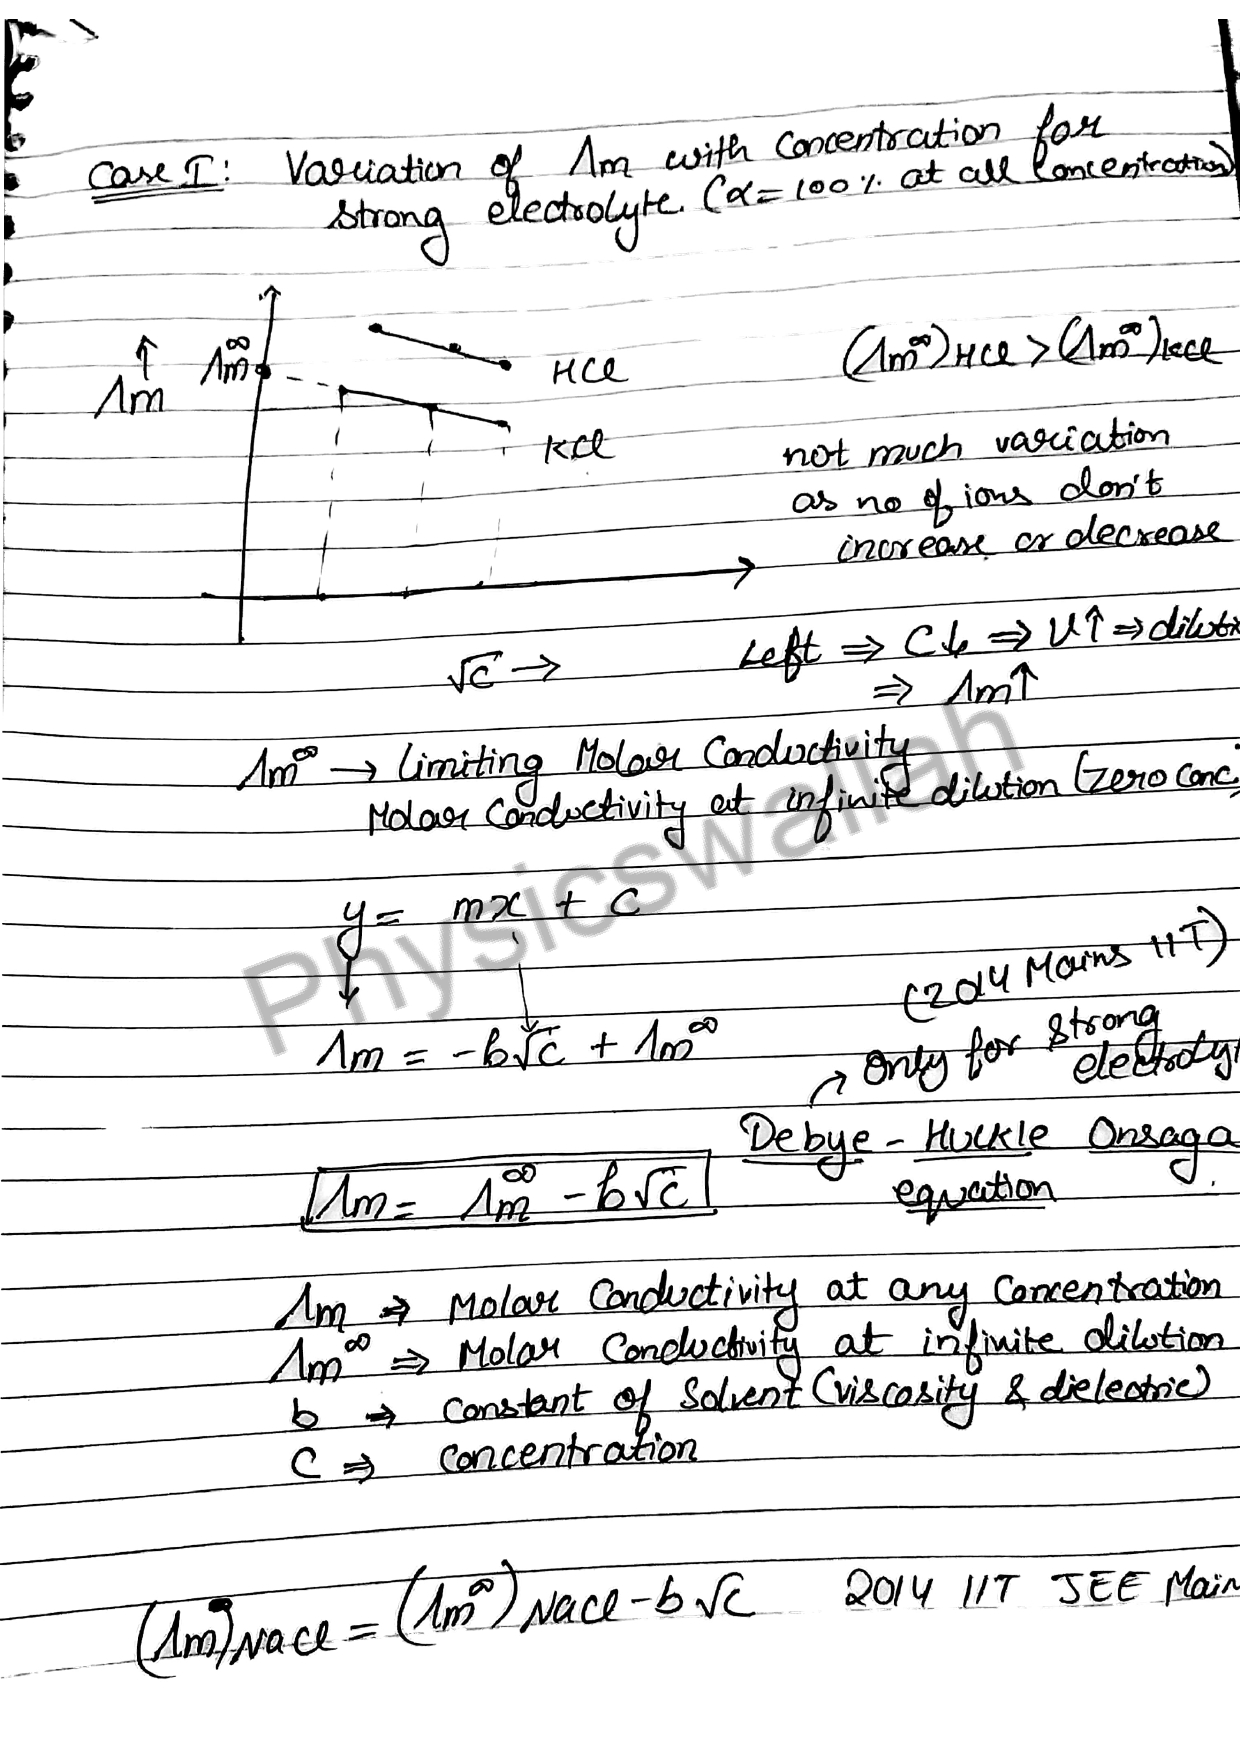 Case I: Variation of Λm with Concentration for
strong electrolyte. (α = 100% at all Concentration)
↑
Λm
Λm∞
HCl
KCl
(Λm∞)HCl > (Λm∞)KCl
not much variation
as no of ions don't
increase or decrease
√c →
Left ⇒ C↓ ⇒ V↑ ⇒ diluti
⇒ Λm↑
Λm∞ → Limiting Molar Conductivity
Molar Conductivity at infinite dilution (zero conc.)
Physicswallah
y = mx + c
Λm = -b√c + Λm∞
(2014 Mains IIT)
only for strong
electrolyt
Debye - Huckle Onsaga
equation
Λm = Λm∞ - b√c
Λm ⇒ Molar Conductivity at any Concentration
Λm∞ ⇒ Molar Conductivity at infinite dilution
b ⇒ constant of solvent (viscosity & dielectric)
C ⇒ Concentration
(Λm)NaCl = (Λm∞)NaCl - b√c 2014 IIT JEE Main